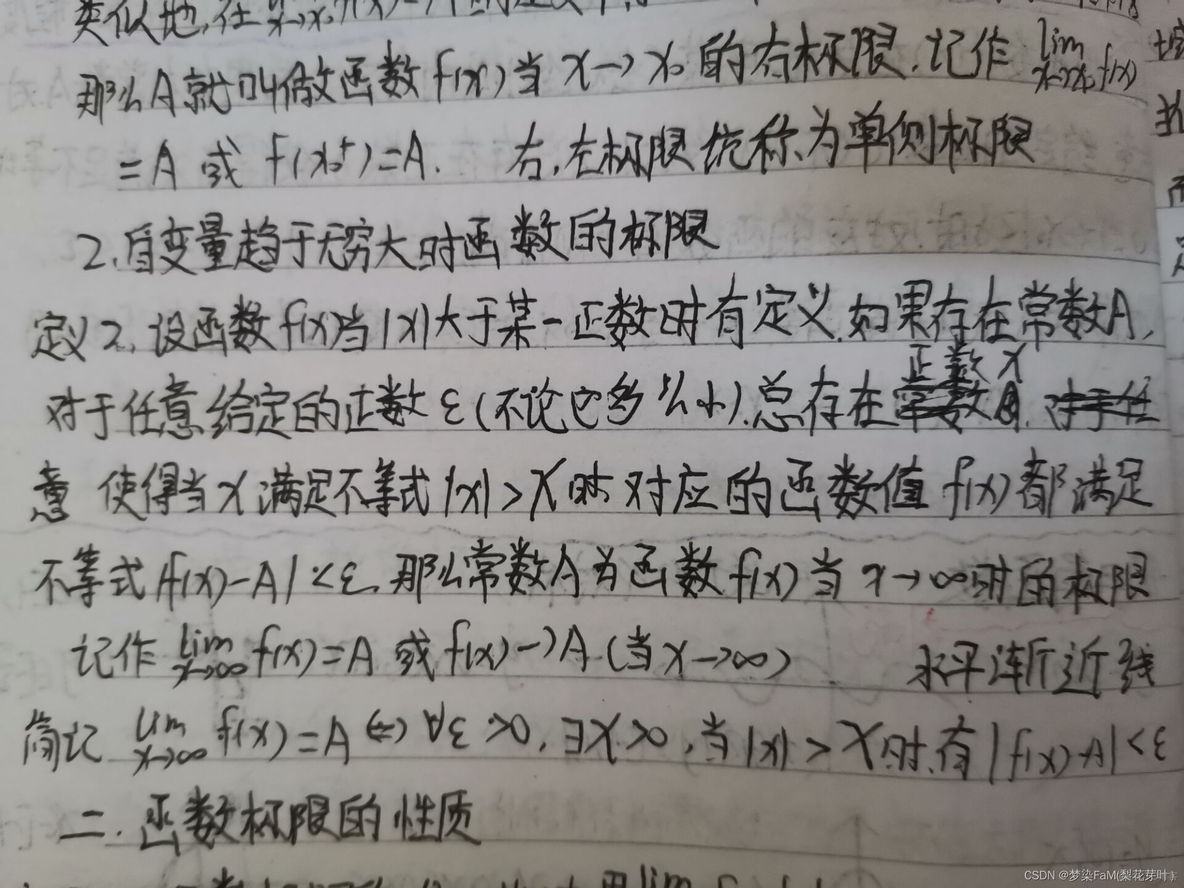 类似地,在
那么A就叫做函数f(x)当x→x₀的右极限.记作 lim x→x₀ f(x)
=A 或 f(x₀⁺)=A. 右,左极限统称为单侧极限
2.自变量趋于无穷大时函数的极限
定义2.设函数f(x)当|x|大于某一正数时有定义.如果存在常数A,
正数X
对于任意给定的正数ε(不论它多么小).总存在常数 对于任
意 使得当x满足不等式|x|>X时 对应的函数值f(x)都满足
不等式|f(x)-A|<ε.那么常数A为函数f(x)当x→∞时的极限
记作 lim x→∞ f(x)=A 或f(x)→A.(当x→∞) 水平渐近线
简记 lim x→∞ f(x)=A⇔∀ε>0,∃X>0,当|x|>X时.有|f(x)-A|<ε
二.函数极限的性质
CSDN @梦染FaM(梨花芽叶)